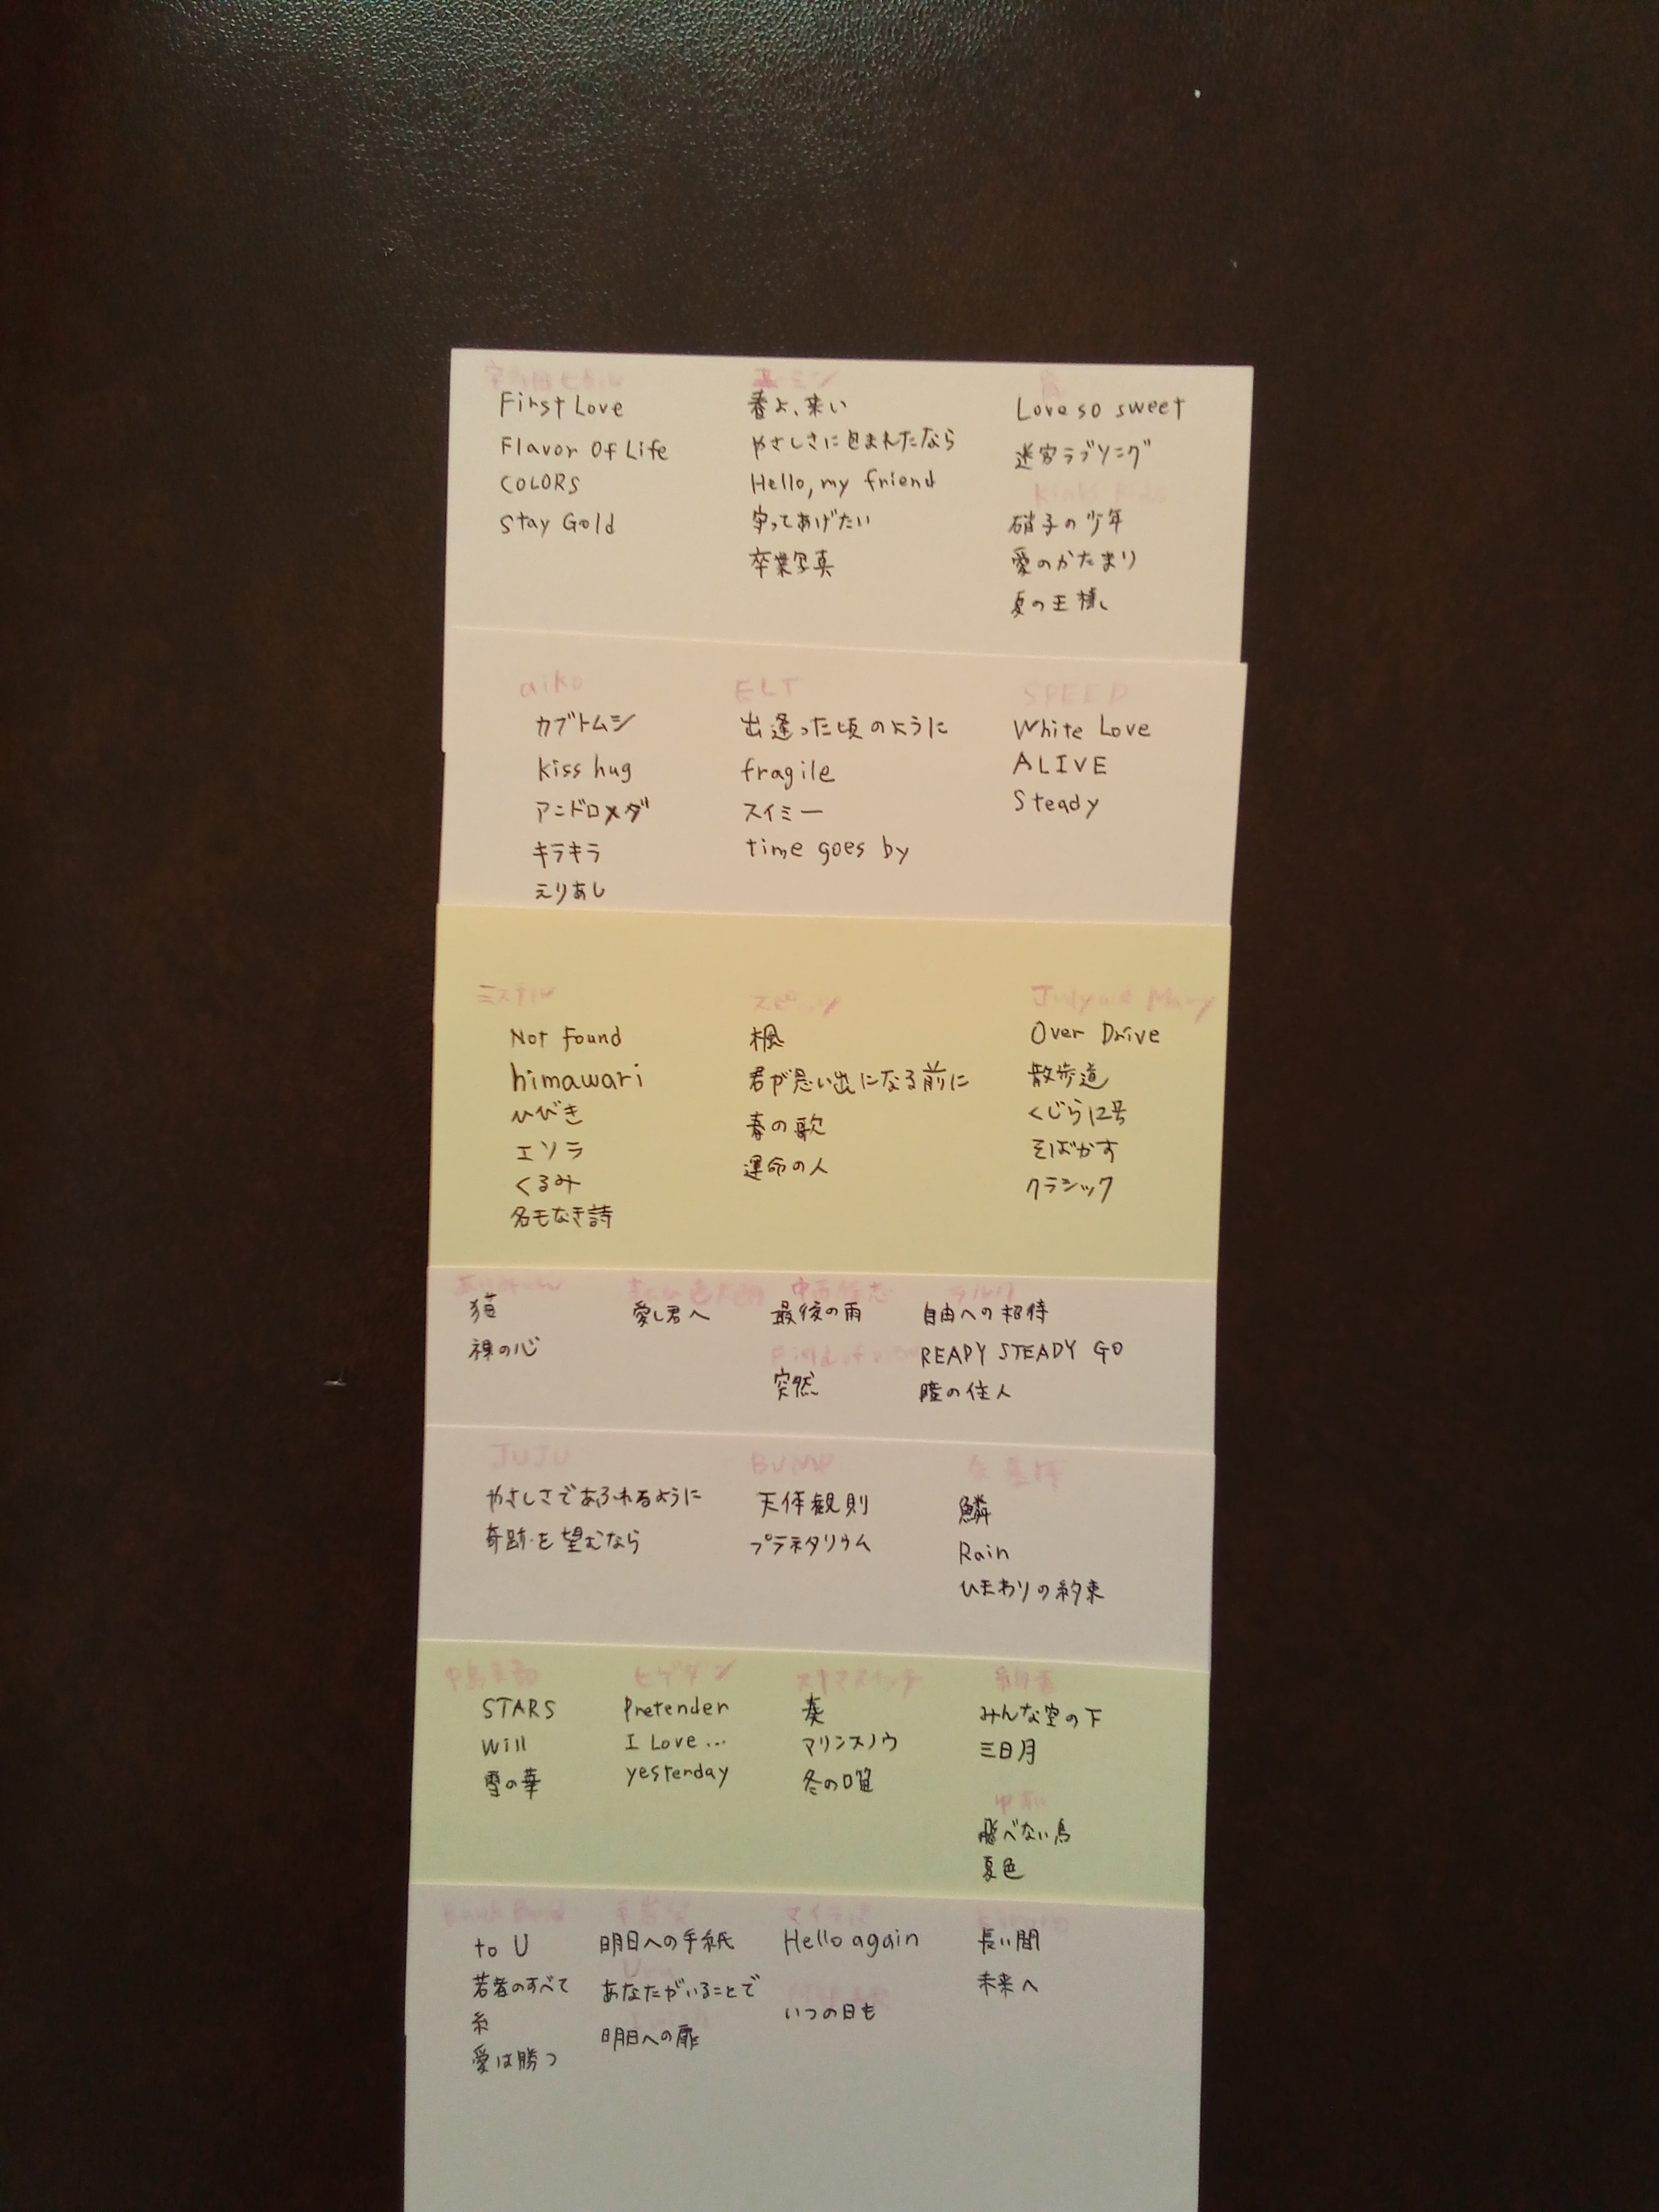 宇多田ヒカル
First Love
Flavor Of Life
COLORS
Stay Gold
ユーミン
春よ、来い
やさしさに包まれたなら
Hello, my friend
守ってあげたい
卒業写真
嵐
Love so sweet
迷宮ラブソング
Kinki Kids
硝子の少年
愛のかたまり
夏の王様
aiko
カブトムシ
kiss hug
アンドロメダ
キラキラ
えりあし
ELT
出逢った頃のように
fragile
スイミー
time goes by
SPEED
White Love
ALIVE
Steady
ミスチル
Not found
himawari
ひびき
エソラ
くるみ
名もなき詩
スピッツ
楓
君が思い出になる前に
春の歌
運命の人
Judy and Mary
Over Drive
散歩道
くじら12号
そばかす
クラシック
あいみょん
猫
裸の心
愛し君へ
中西保志
最後の雨
Field of view
突然
ラルク
自由への招待
READY STEADY GO
瞳の住人
JUJU
やさしさであふれるように
奇跡を望むなら
BUMP
天体観則
プラネタリウム
秦基博
鱗
Rain
ひまわりの約束
中島美嘉
STARS
Will
雪の華
ヒゲダン
Pretender
I Love...
yesterday
スキマスイッチ
奏
マリンスノウ
冬の口笛
絢香
みんな空の下
三日月
ゆず
飛べない鳥
夏色
Bank Band
to U
若者のすべて
糸
愛は勝つ
手嶌葵
明日への手紙
Uru
あなたがいることで
明日への扉
マイラバ
Hello again
いつの日も
Kiroro
長い間
未来へ